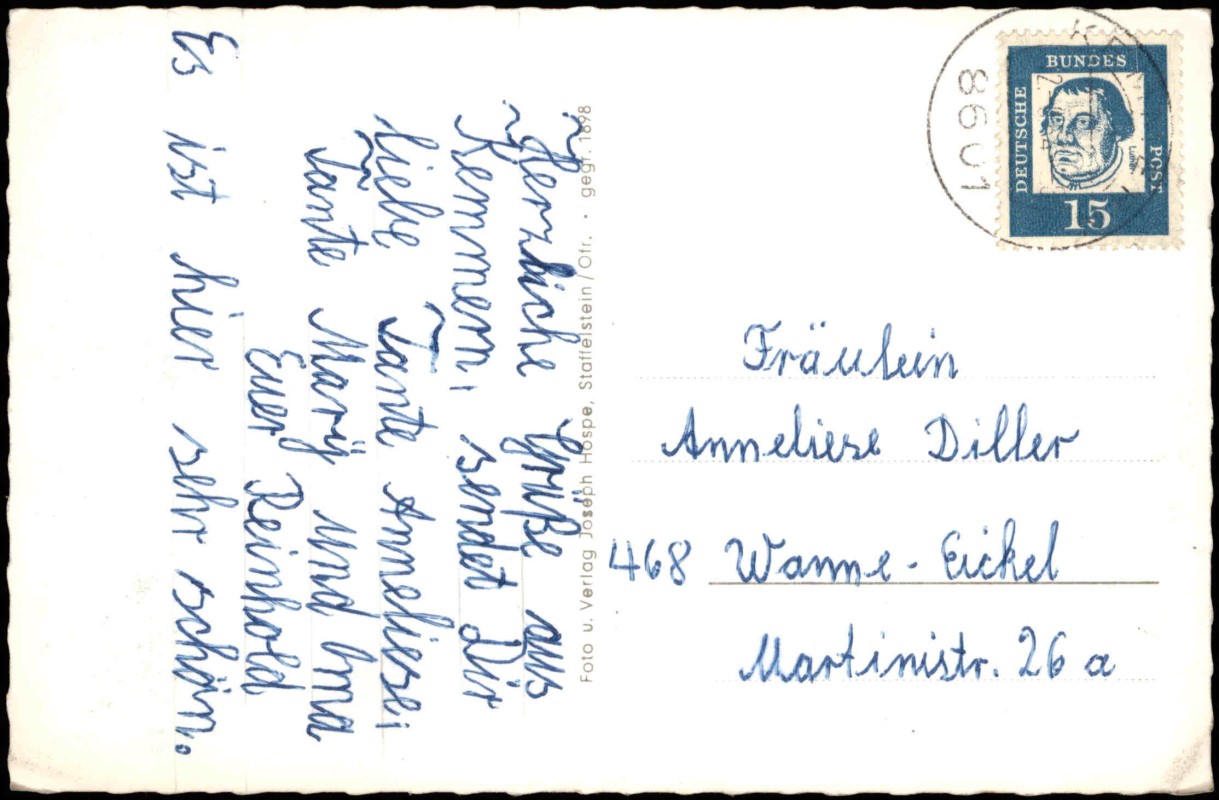 Herzliche Grüße aus
Kemmern, sendet Dir
liebe Tante Anneliese,
Tante Marij und Oma
Euer Reinhold
Es ist hier sehr schön.
Foto u. Verlag Joseph Hospe, Staffelstein/Ofr. · gegr. 1898
8601
DEUTSCHE
BUNDES
POST
Luther
15
Fräulein
Anneliese Diller
468 Wanne-Eickel
Martinistr. 26 a